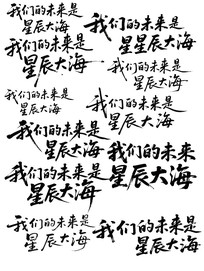 我们的未来是
星辰大海
我们的未来是
星辰大海
我们的未来是
星辰大海
我们的未来是
星辰大海
我们的未来是
星辰大海
我们的未来是
星辰大海
我们的未来是
星辰大海
我们的未来是
星辰大海
我们的未来
星辰大海
我们的未来是
星辰大海
我们的未来是
星辰大海